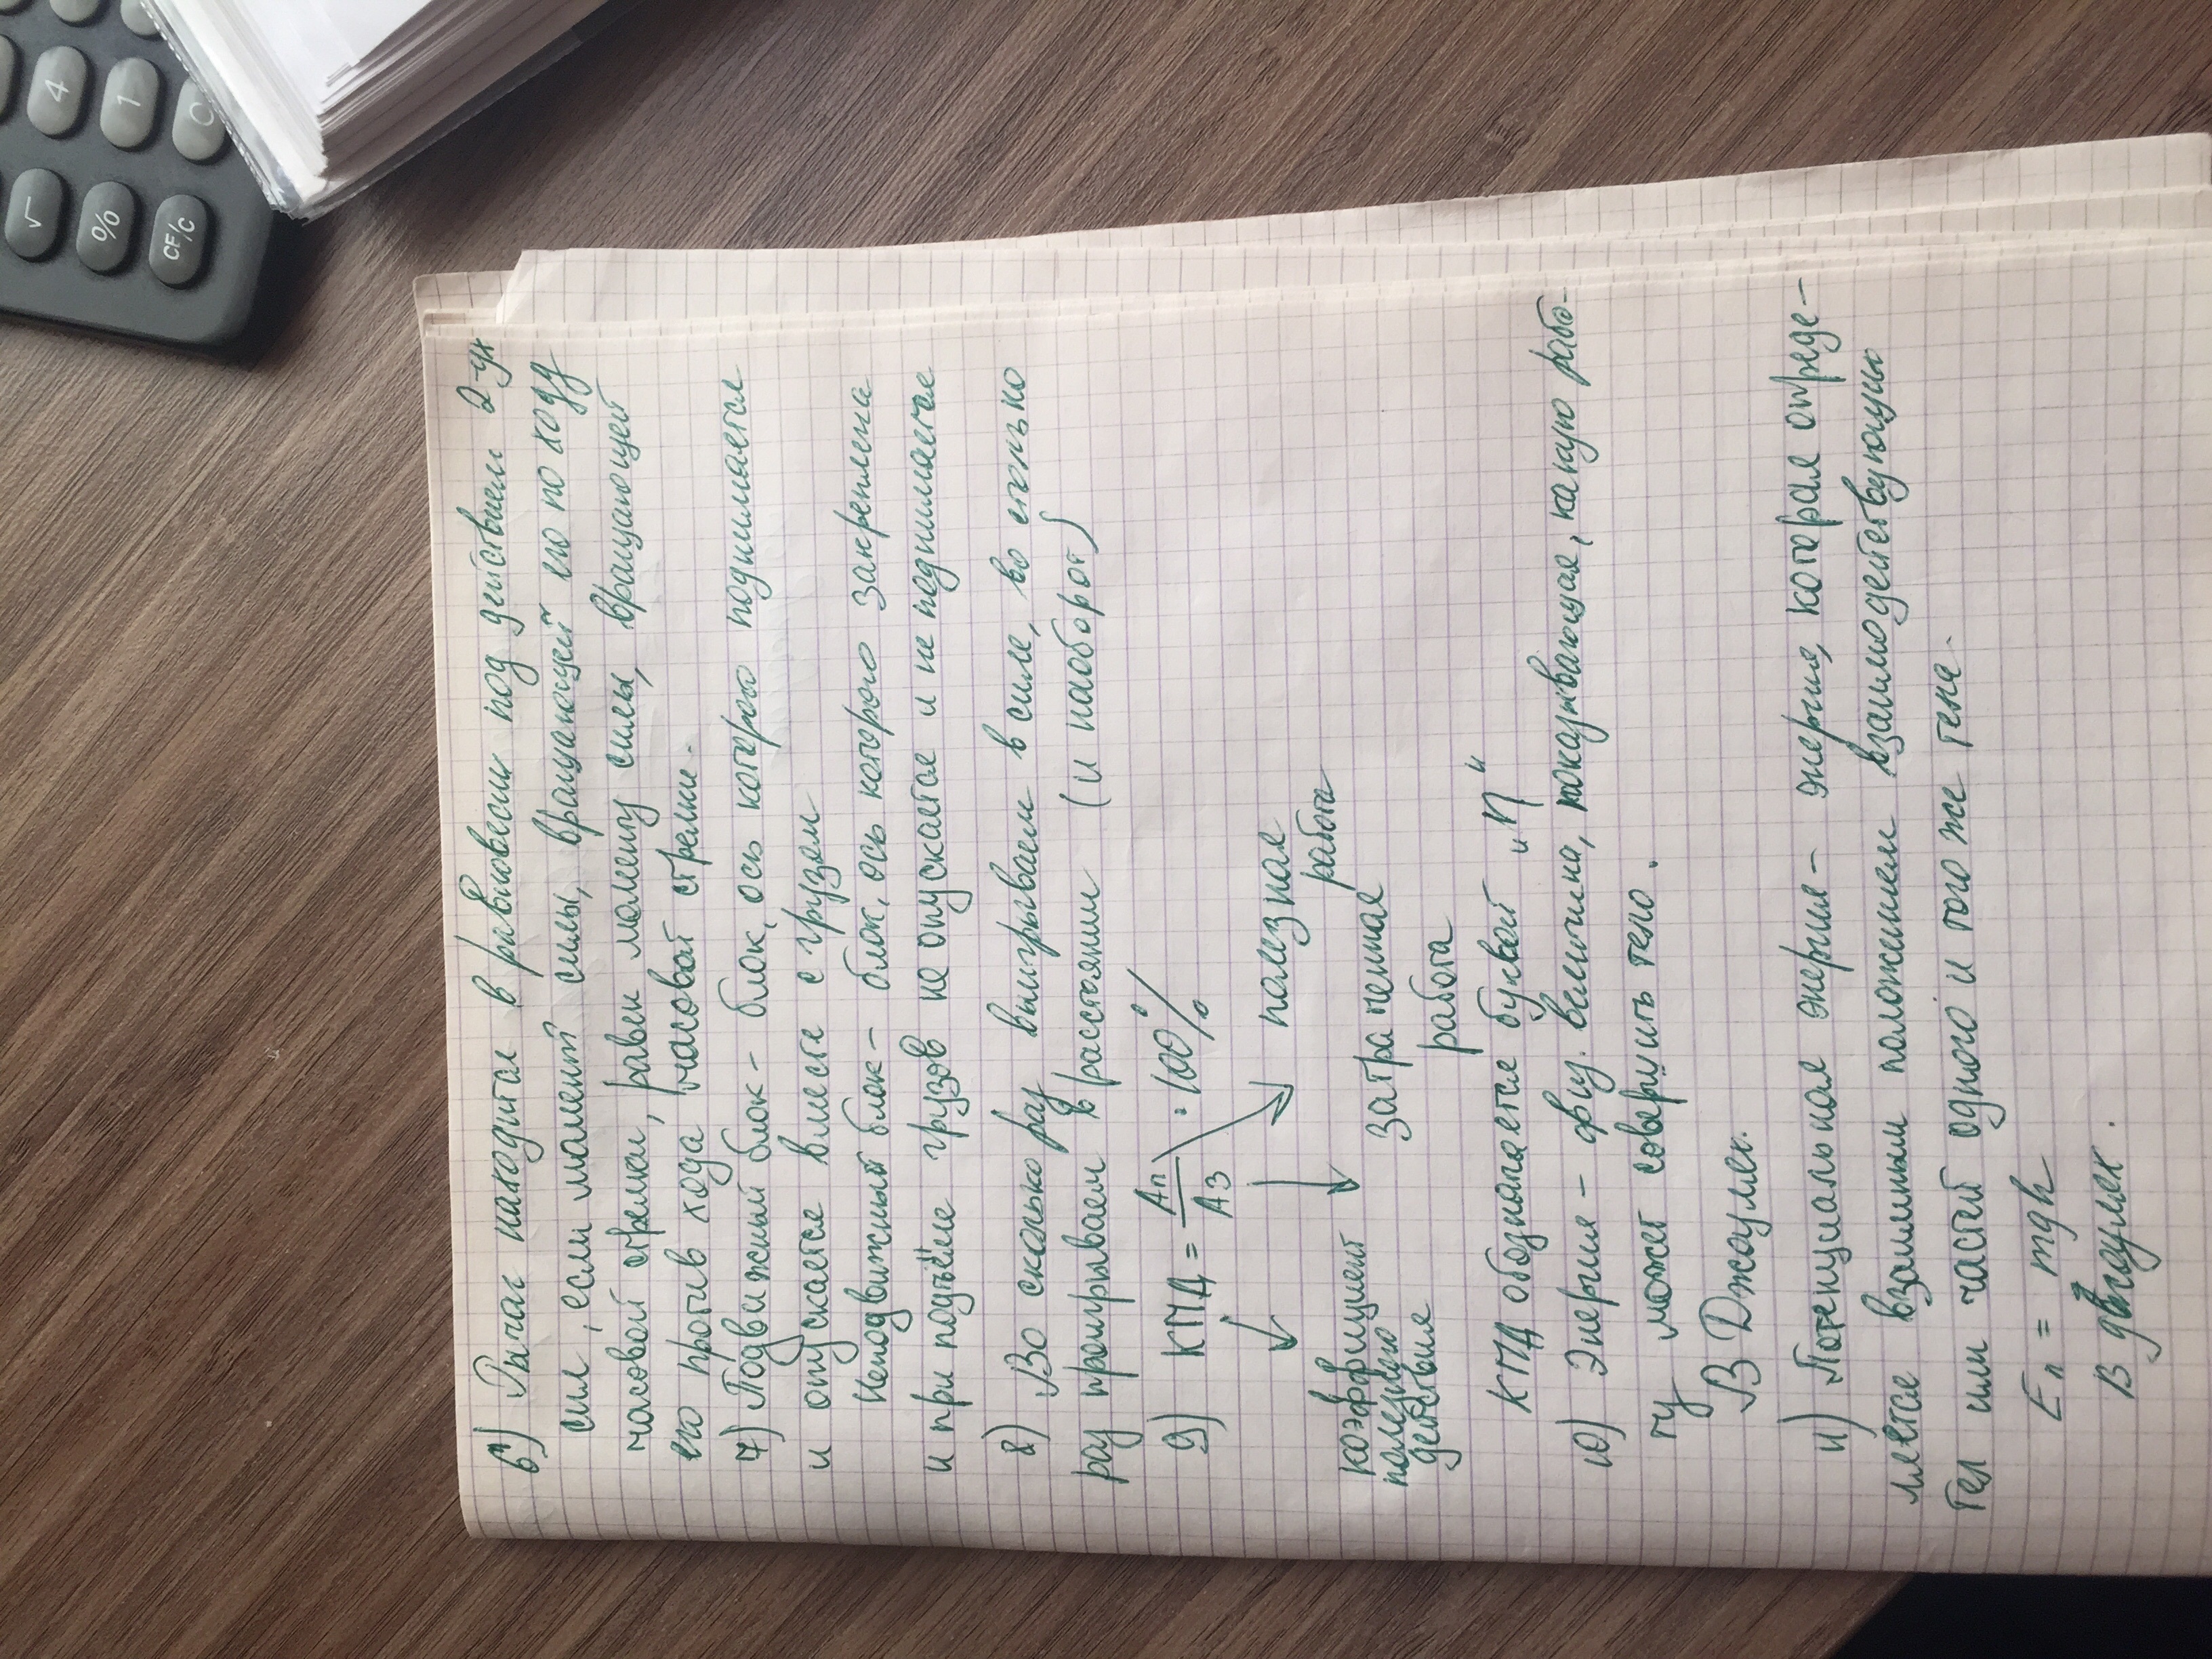 6) Рычаг находится в равновесии под действием 2-ух
сил, если момент силы, вращающей его по ходу
часовой стрелки, равен моменту силы, вращающей
его против хода часовой стрелки.
7) Подвижный блок - блок, ось которого поднимается
и опускается вместе с грузом
Неподвижный блок - блок, ось которого закреплена
и при подъёме грузов не опускается и не поднимается
8) Во сколько раз выигрываем в силе, во столько
раз проигрываем в расстоянии (и наоборот)
9) КПД = Aп/Aз · 100%
полезная
работа
затраченная
работа
коэффициент
полезного
действия
КПД обозначается буквой "η"
10) Энергия - физ. величина, показывающая, какую рабо-
ту может совершить тело.
В Джоулях.
11) Потенциальная энергия - энергия, которая опреде-
ляется взаимным положением взаимодействующих
тел или частей одного и того же тела.
Eп = mgh
В джоулях.
4
1
0
√
%
CE/C